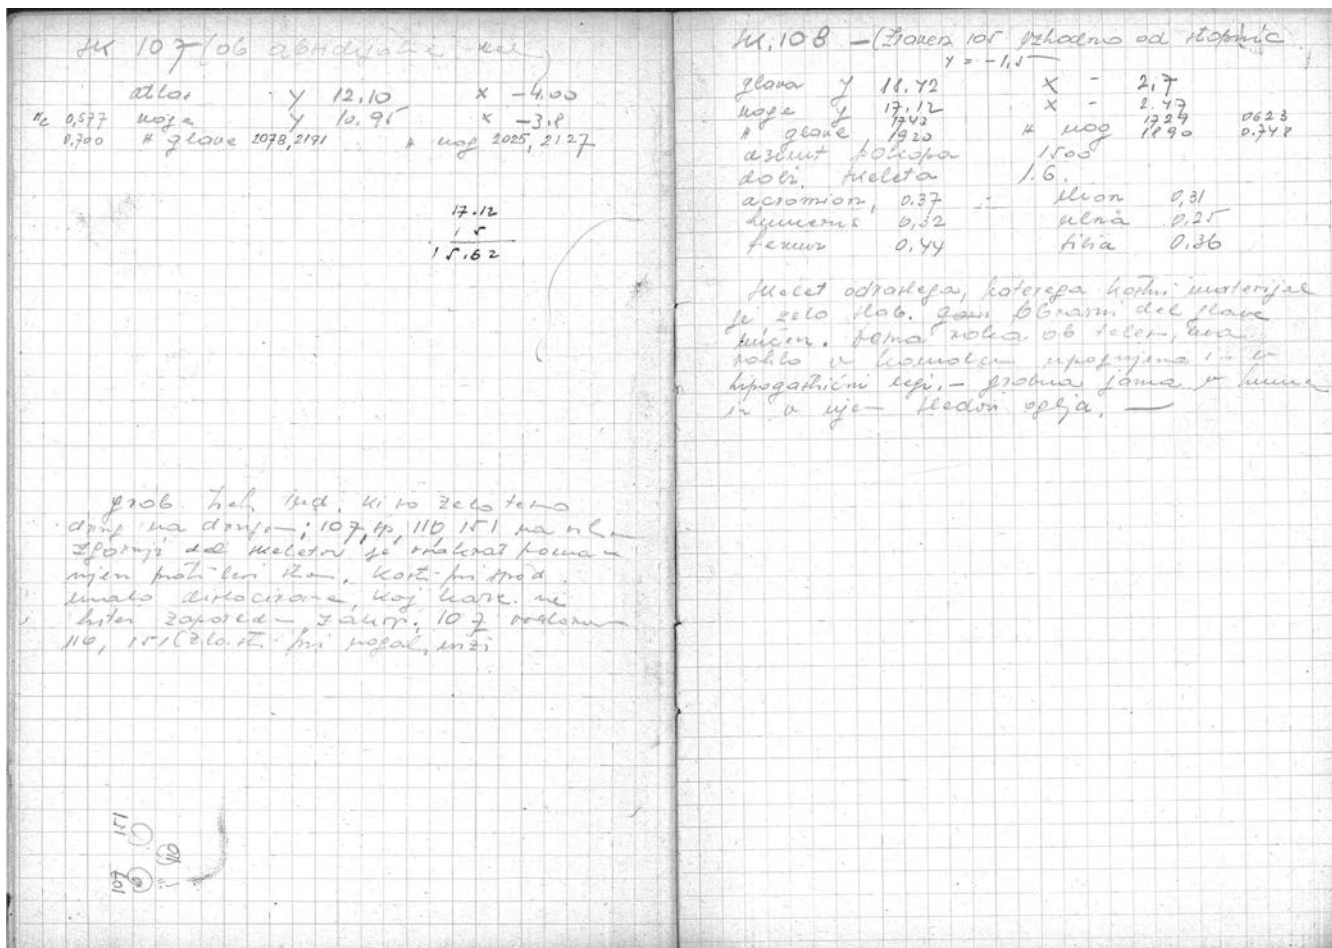 SK 107 (ob absidijalni
atlas y 12.10 x -4.00
0,577 noge y 10.95 x -3.8
0,700 H glave 2078, 2191 H nog 2025, 2127
17.12
1 5
15.62
grob treh ind. ki so zelo tesno
drug na drugem; 107, sp, 110, 151 na
zgornji del skeletov je
njen proti levi Kosti pri spod.
malo dislocirane, kaj kaže ne
hiter zakop. 107
110, 151 (zlasti pri nogah, niži
151
110
107
SK. 108 – (Zraven 105 vzhodno od stopnic
y = -1,5
glava y 18.42 x - 2,7
noge y 17.12 x - 2.47
1743 1729 0623
H glave 1920 H nog 1890 0.748
azimut pokopa 1500
dolž. skeleta 1.6.
acromion, 0.37 ilion 0,31
humerus 0,32 ulna 0,25
femur 0,44 tibia 0,36
Skelet odraslega, katerega kostni materijal
je zelo slab. Obrazni del glave
uničen. desna roka ob telesu, leva
v komolcu upognjena in v
hipogastrični legi. – grobna jama v humu
in v njem sledovi oglja. —